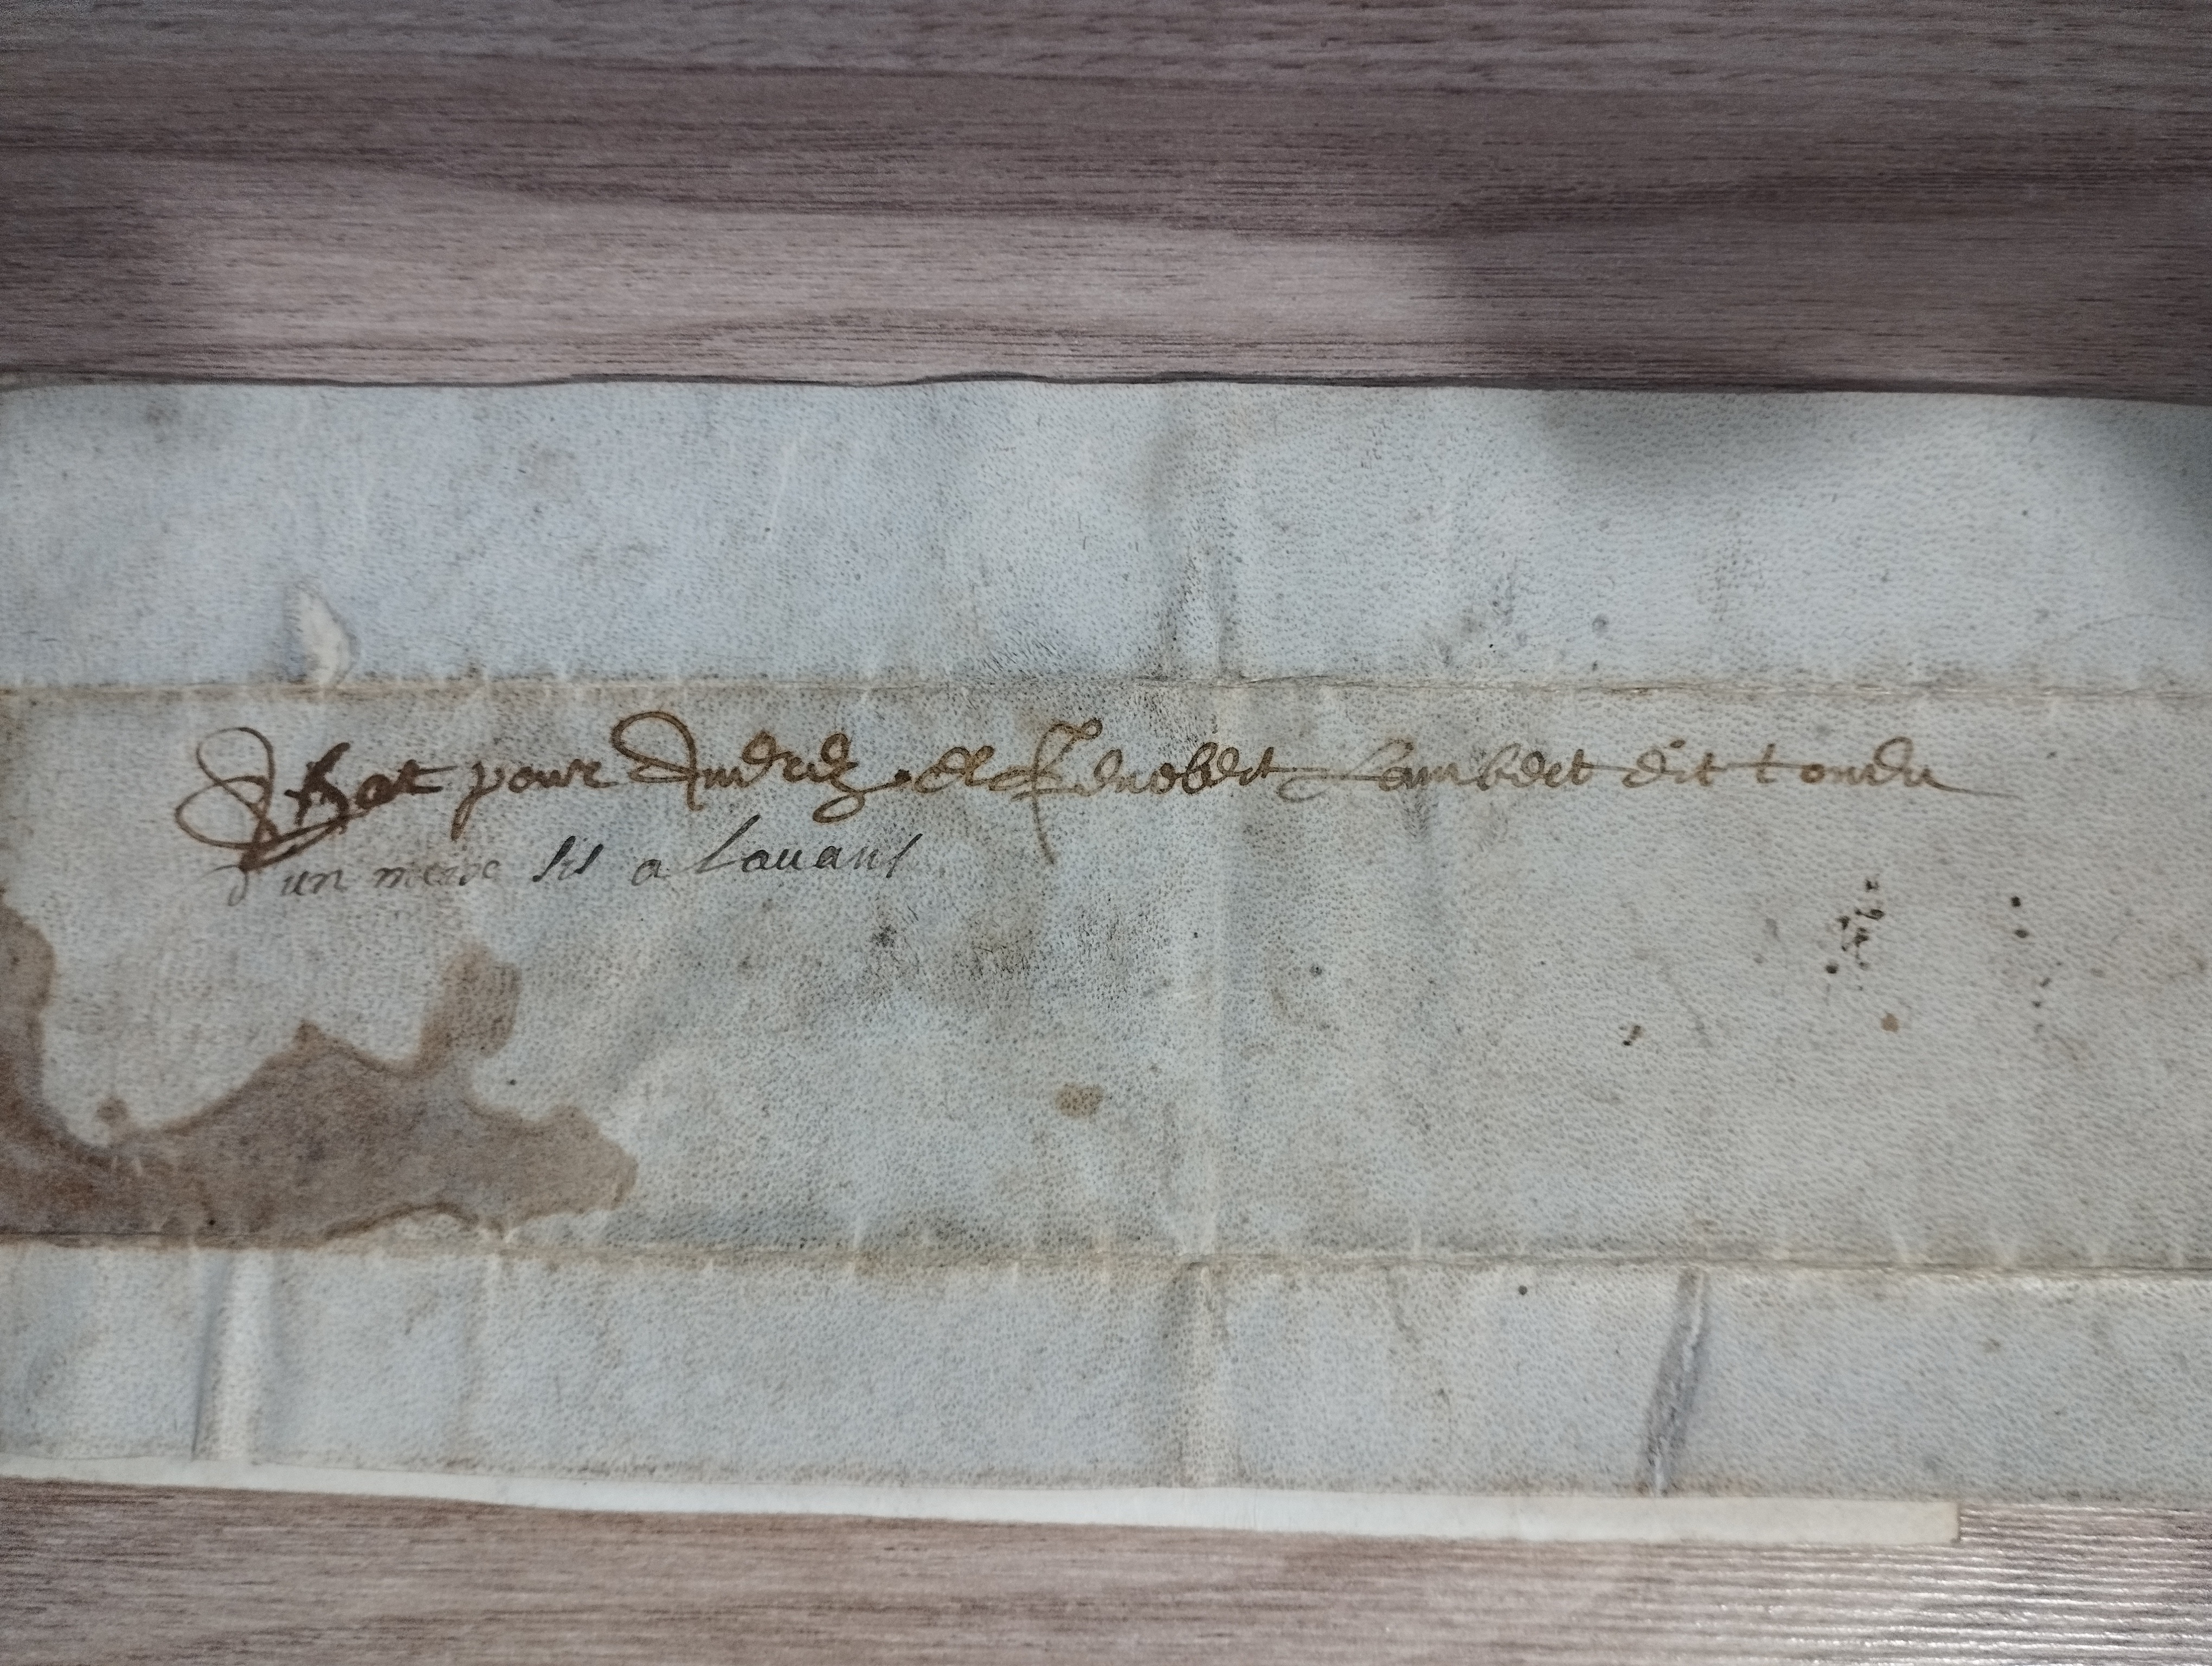 Achat pour Andrez et Lambert dit tondu
d'un meix sis a Lavans